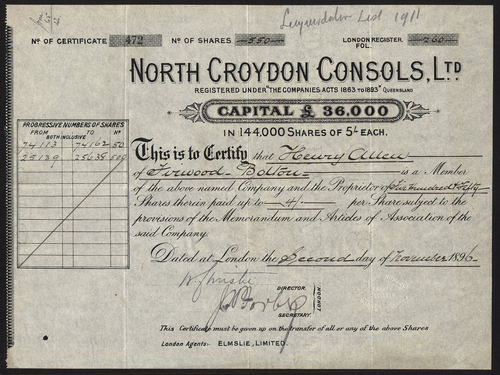 Liquidation List 1911
Nº OF CERTIFICATE 472 Nº OF SHARES 550 LONDON REGISTER FOL. 260
NORTH CROYDON CONSOLS, LTD
REGISTERED UNDER "THE COMPANIES ACTS 1863 TO 1893" QUEENSLAND
CAPITAL £36.000
IN 144,000 SHARES OF 5/- EACH.
PROGRESSIVE NUMBERS OF SHARES
FROM TO
BOTH INCLUSIVE
74113 74162 50
25139 25638 500
This is to Certify that Henry Allen
of Firwood Bolton is a Member
of the above named Company and the Proprietor of Five hundred & Fifty
Shares therein paid up to 4/- per Share subject to the
provisions of the Memorandum and Articles of Association of the
said Company.
Dated at London the Second day of November 1896
DIRECTOR.
LONDON.
SECRETARY.
This Certificate must be given up on the transfer of all or any of the above Shares
London Agents:- ELMSLIE, LIMITED.